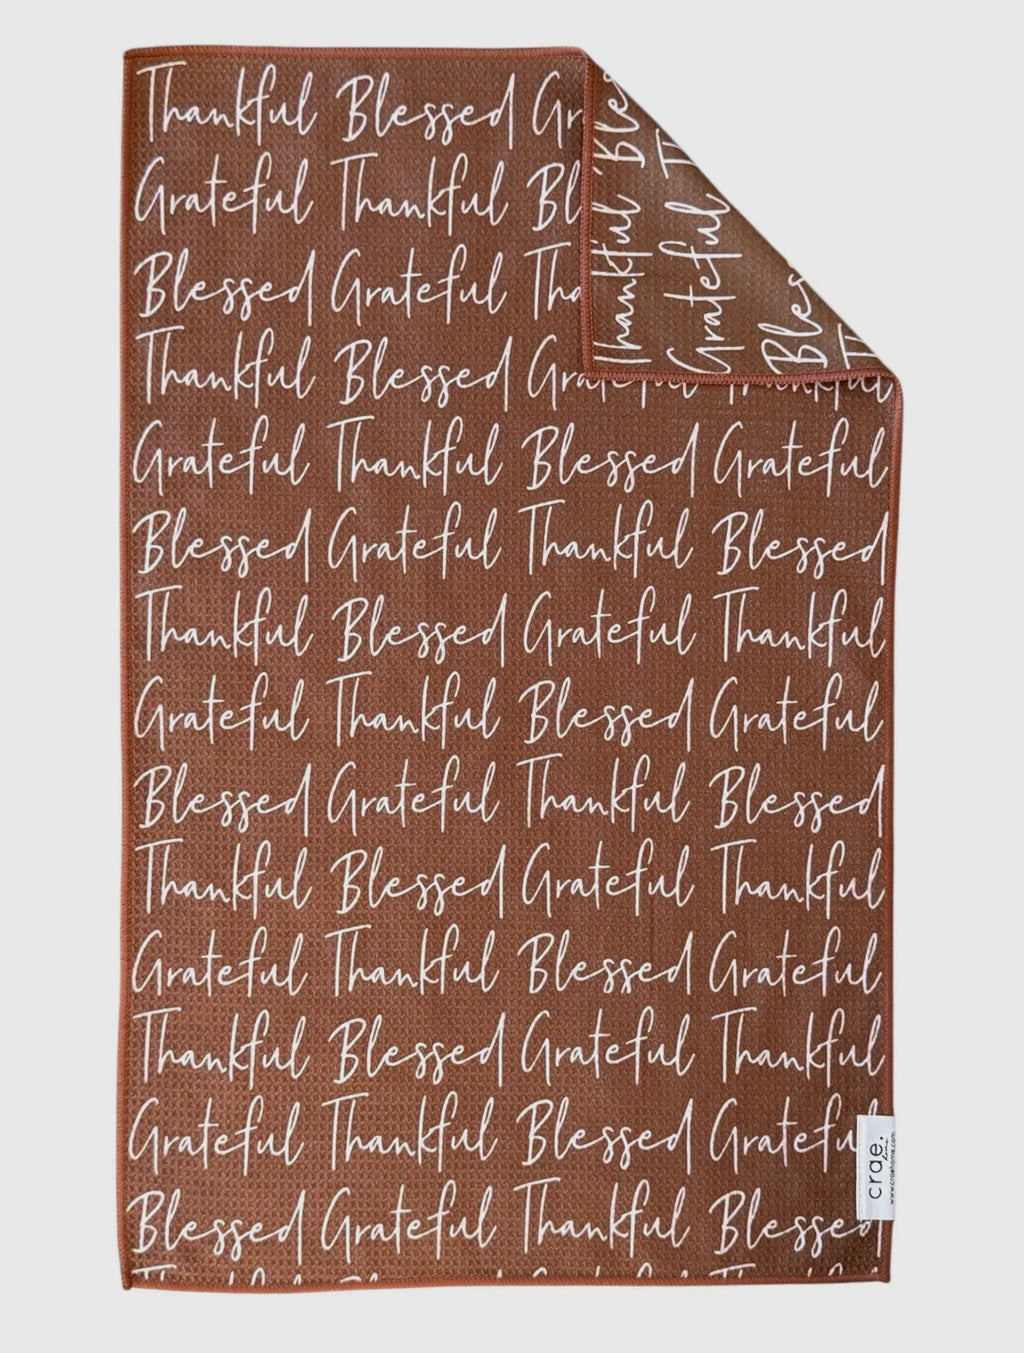 Thankful Blessed Gr
Grateful Thankful Bl
Blessed Grateful Tha
Thankful Blessed Grateful Thankful
Grateful Thankful Blessed Grateful
Blessed Grateful Thankful Blessed
Thankful Blessed Grateful Thankful
Grateful Thankful Blessed Grateful
Blessed Grateful Thankful Blessed
Thankful Blessed Grateful Thankful
Grateful Thankful Blessed Grateful
Thankful Blessed Grateful Thankful
Grateful Thankful Blessed Grateful
Blessed Grateful Thankful Blessed
Thankful Bles
Grateful T
Bles
T
crae.
home
www.craehome.com